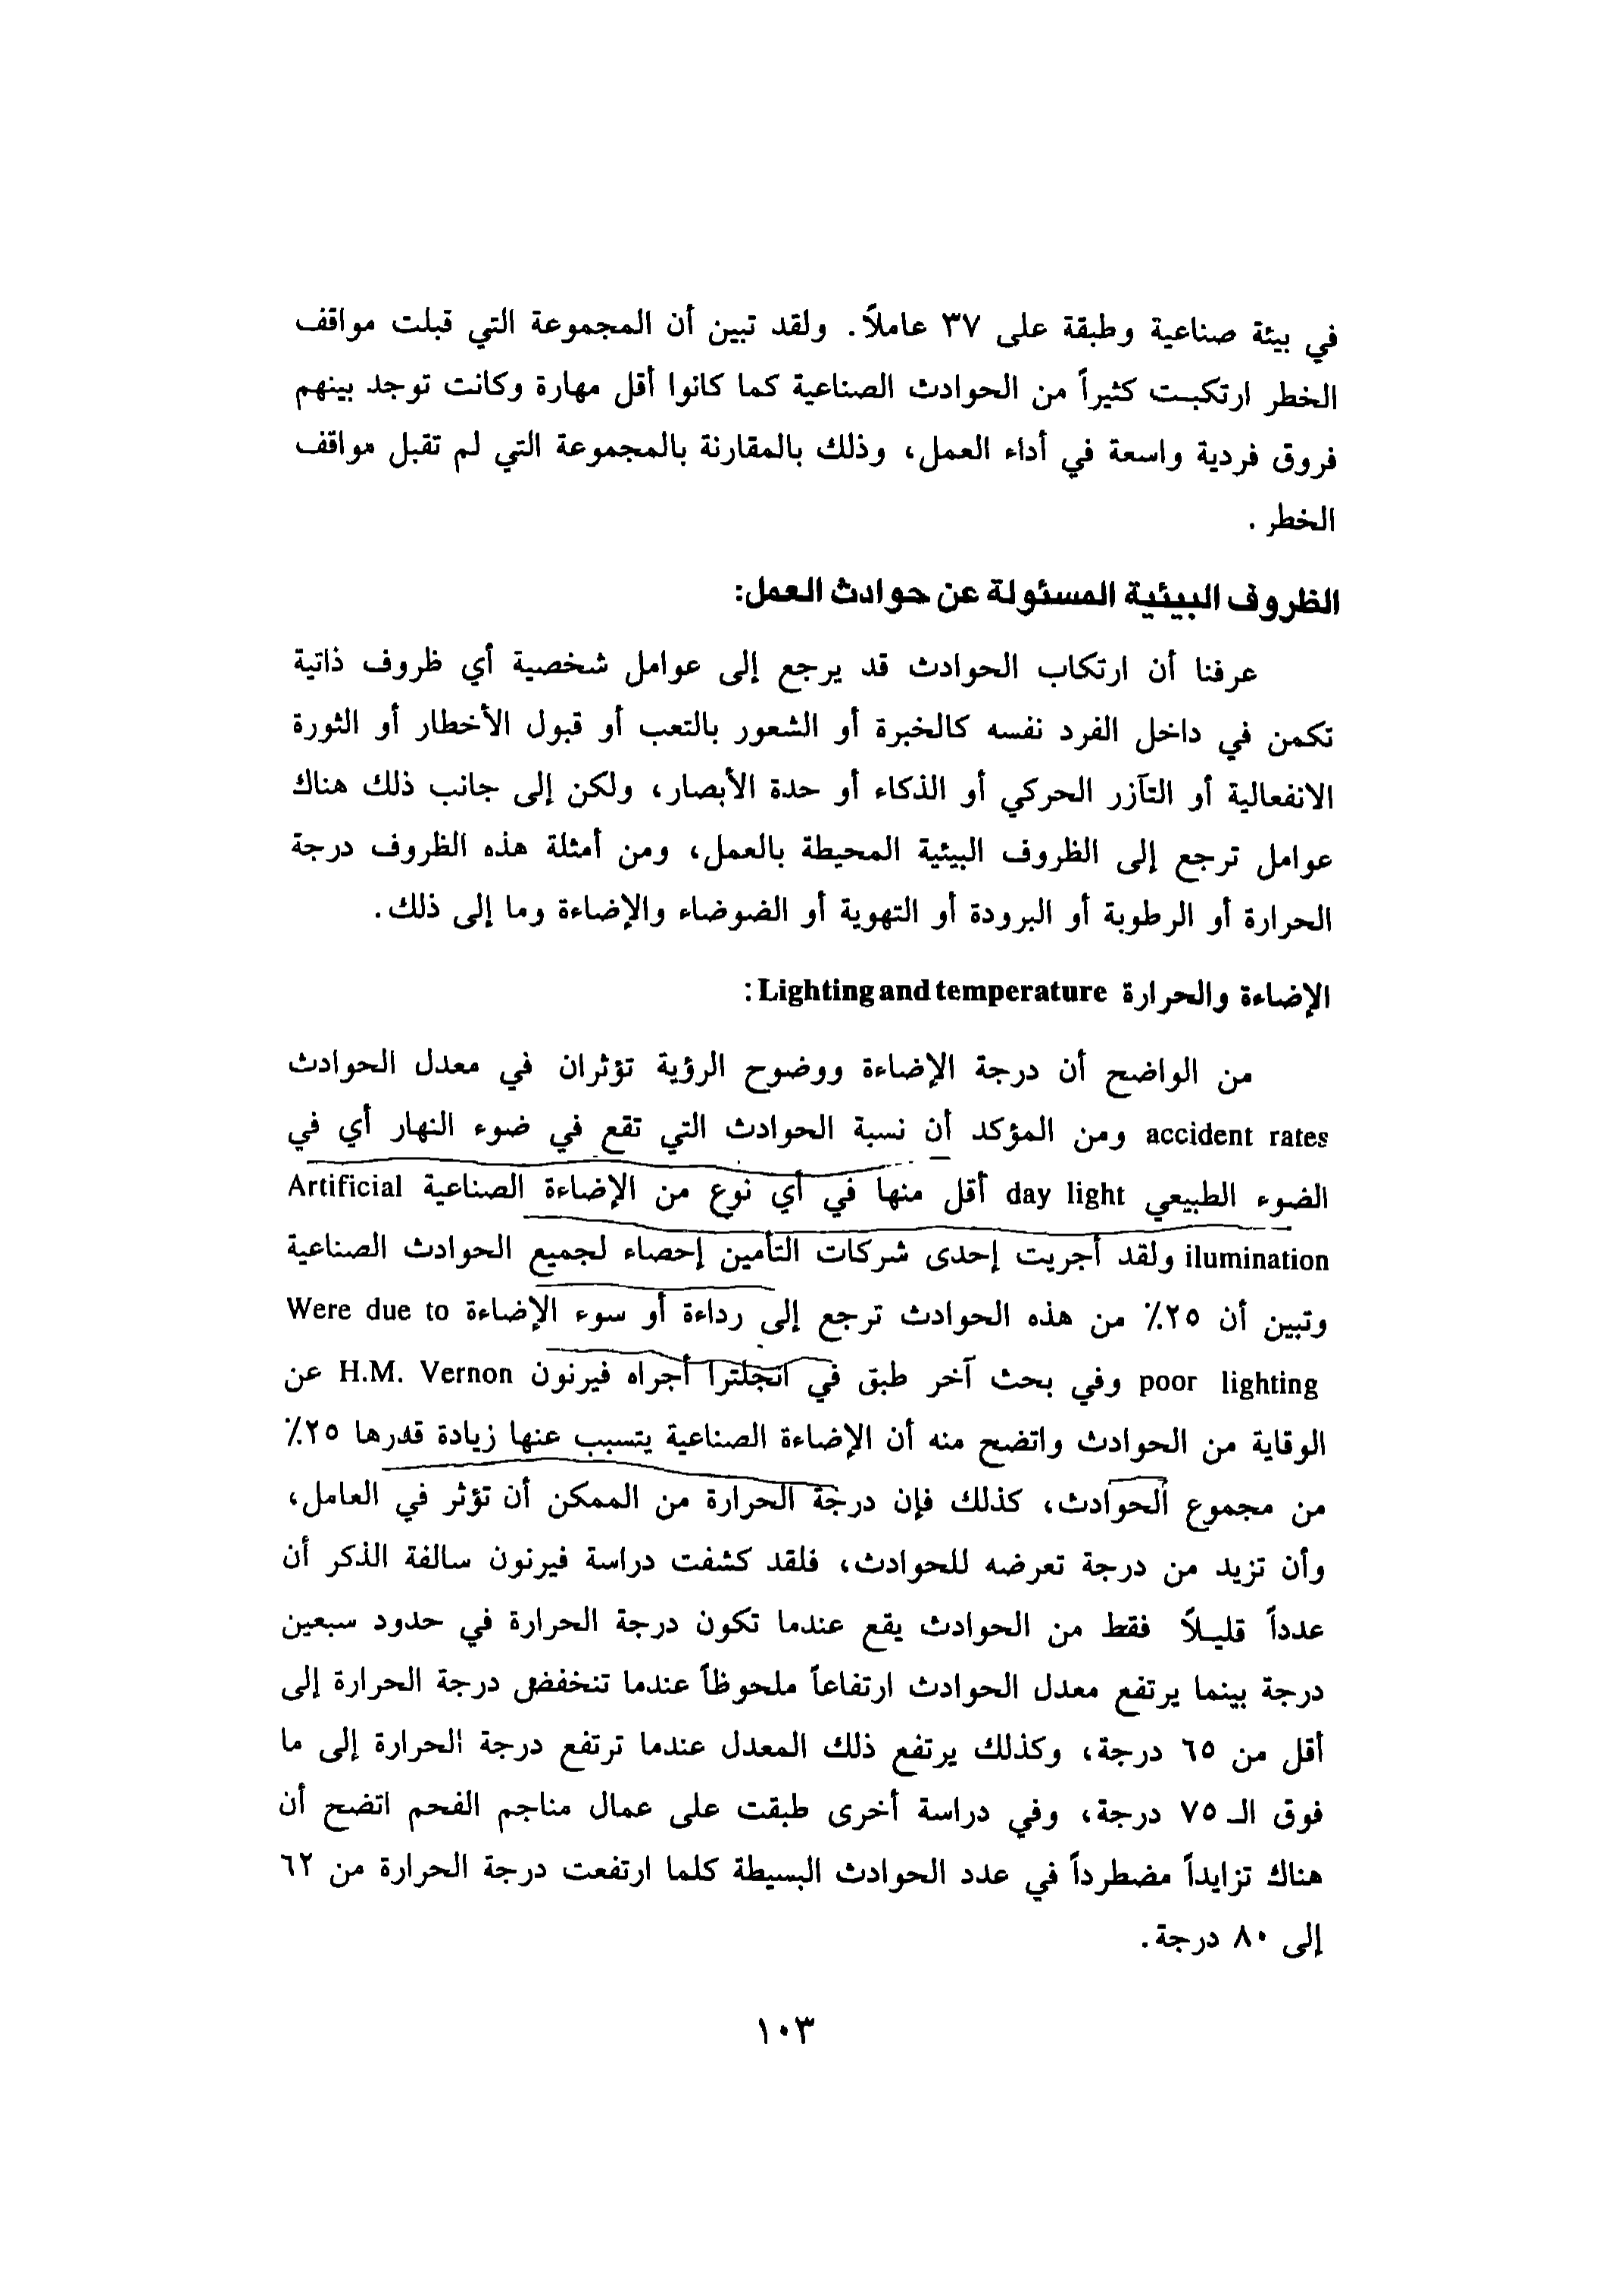 في بيئة صناعية وطبقة على ٣٧ عاملاً. ولقد تبين أن المجموعة التي قبلت مواقف
الخطر ارتكبت كثيراً من الحوادث الصناعية كما كانوا أقل مهارة وكانت توجد بينهم
فروق فردية واسعة في أداء العمل، وذلك بالمقارنة بالمجموعة التي لم تقبل مواقف
الخطر .
الظروف البيئية المسئولة عن حوادث العمل:
عرفنا أن ارتكاب الحوادث قد يرجع إلى عوامل شخصية أي ظروف ذاتية
تكمن في داخل الفرد نفسه كالخبرة أو الشعور بالتعب أو قبول الأخطار أو الثورة
الانفعالية أو التآزر الحركي أو الذكاء أو حدة الأبصار، ولكن إلى جانب ذلك هناك
عوامل ترجع إلى الظروف البيئية المحيطة بالعمل، ومن أمثلة هذه الظروف درجة
الحرارة أو الرطوبة أو البرودة أو التهوية أو الضوضاء والإضاءة وما إلى ذلك.
الإضاءة والحرارة Lighting and temperature :
من الواضح أن درجة الإضاءة ووضوح الرؤية تؤثران في معدل الحوادث
accident rates ومن المؤكد أن نسبة الحوادث التي تقع في ضوء النهار أي في
الضوء الطبيعي day light أقل منها في أي نوع من الإضاءة الصناعية Artificial
ilumination ولقد أجريت إحدى شركات التأمين إحصاء لجميع الحوادث الصناعية
وتبين أن ٢٥٪ من هذه الحوادث ترجع إلى رداءة أو سوء الإضاءة Were due to
poor lighting وفي بحث آخر طبق في انجلترا أجراه فيرنون H.M. Vernon عن
الوقاية من الحوادث واتضح منه أن الإضاءة الصناعية يتسبب عنها زيادة قدرها ٢٥٪
من مجموع الحوادث، كذلك فإن درجة الحرارة من الممكن أن تؤثر في العامل،
وأن تزيد من درجة تعرضه للحوادث، فلقد كشفت دراسة فيرنون سالفة الذكر أن
عدداً قليلاً فقط من الحوادث يقع عندما تكون درجة الحرارة في حدود سبعين
درجة بينما يرتفع معدل الحوادث ارتفاعاً ملحوظاً عندما تنخفض درجة الحرارة إلى
أقل من ٦٥ درجة، وكذلك يرتفع ذلك المعدل عندما ترتفع درجة الحرارة إلى ما
فوق الـ ٧٥ درجة، وفي دراسة أخرى طبقت على عمال مناجم الفحم اتضح أن
هناك تزايداً مضطرداً في عدد الحوادث البسيطة كلما ارتفعت درجة الحرارة من ٦٢
إلى ٨٠ درجة.
١٠٣